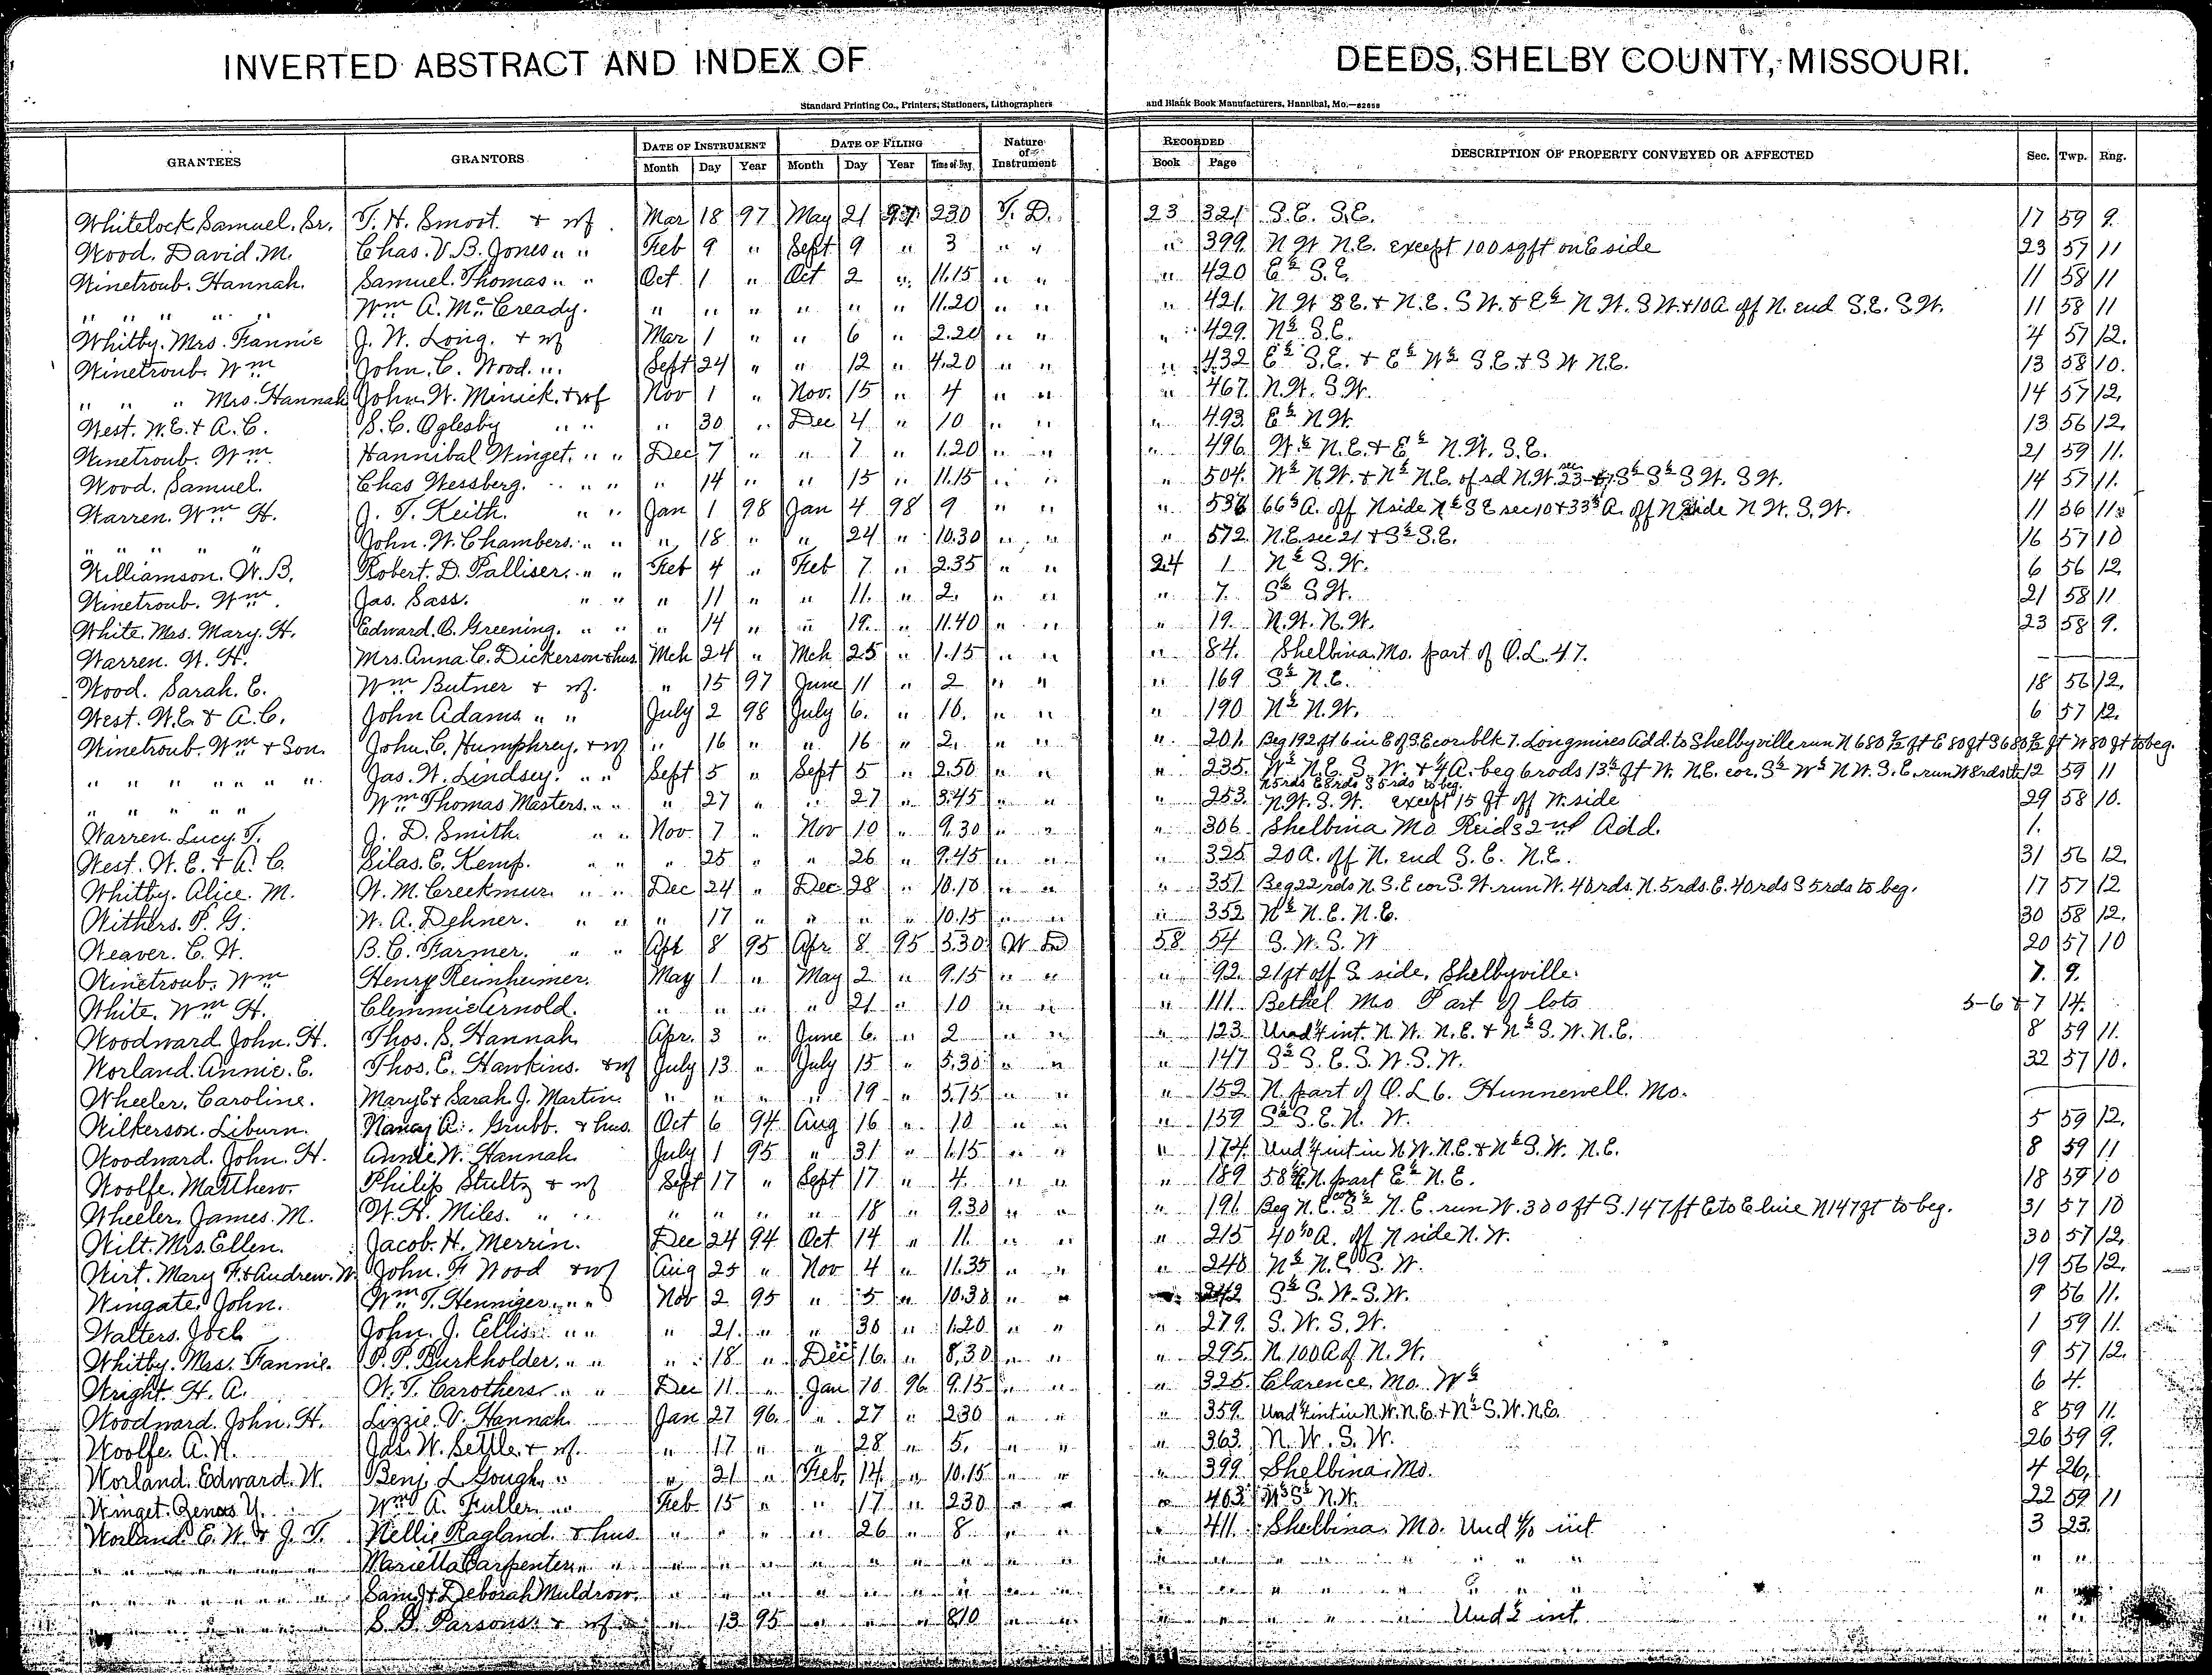 INVERTED ABSTRACT AND INDEX OF DEEDS, SHELBY COUNTY, MISSOURI.
Standard Printing Co., Printers, Stationers, Lithographers and Blank Book Manufacturers, Hannibal, Mo.—62658
GRANTEES GRANTORS DATE OF INSTRUMENT DATE OF FILING Nature of Instrument RECORDED DESCRIPTION OF PROPERTY CONVEYED OR AFFECTED Sec. Twp. Rng.
Month Day Year Month Day Year Time of Day Book Page
Whitelock Samuel, Sr. T. H. Smoot & wf Mar 18 97 May 21 97 2.30 T. D. 23 321 S.E. S.E. 17 59 9.
Wood. David. M. Chas. V. B. Jones " " Feb 9 " Sept 9 " 3 " " " 399. N W N.E. except 100 sq ft on E side 23 57 11
Winetroub. Hannah. Samuel. Thomas " " Oct 1 " Oct 2 " 11.15 " " " 420 E½ S.E. 11 58 11
" " " " Wm A. McCready. " " " " " " 11.20 " " " 421. N W S E. & N.E. S W. & E½ N W. S W. & 10 A. off N. end S.E. S.W. 11 58 11
Whitby. Mrs. Fannie J. W. Long. & wf Mar 1 " " 6 " 2.20 " " " 429. N½ S.E. 4 57 12.
Winetroub. Wm John. C. Wood. " " Sept 24 " " 12 " 4.20 " " " 432 E½ S.E. & E½ W½ S.E. & S W N.E. 13 58 10.
" " " Mrs. Hannah John. W. Minick. & wf Nov 1 " Nov. 15 " 4 " " " 467. N.W. S.W. 14 57 12.
West. W. E. & A. C. S. C. Oglesby " " " 30 " Dec 4 " 10 " " " 493. E½ N W. 13 56 12.
Winetroub. Wm Hannibal Winget. " " Dec 7 " " 7 " 1.20 " " " 496. W.½ N.E. & E½ N.W. S.E. 21 59 11.
Wood. Samuel. Chas Wessberg. " " " 14 " " 15 " 11.15 " " " 504. W½ N.W. & N½ N.E. of sd N.W. sec 23 - & S½ S½ S W. S W. 14 57 11.
Warren. Wm H. J. T. Keith. " " Jan 1 98 Jan 4 98 9 " " " 536 A. off N side N½ S E sec 10 & A. off N side N W. S.W. 11 56 11
" " " " John. W. Chambers. " " " 18 " " 24 " 10.30 " " " 572. N.E. sec 21 & S½ S.E. 16 57 10
Williamson. W. B. Robert. D. Palliser. " " Feb 4 " Feb 7 " 2.35 " " 24 1 N½ S.W. 6 56 12
Winetroub. Wm Jas. Sass. " " " 11 " " 11. " 2. " " " 7. S½ S W. 21 58 11
White. Mrs. Mary. H. Edward. C. Greening. " " " 14 " " 19. " 11.40 " " " 19. N.W. N.W. 23 58 9.
Warren. W. H. Mrs. Anna C. Dickerson & hus Mch 24 " Mch 25 " 1.15 " " " 84. Shelbina. Mo. part of O.L. 47. —
Wood. Sarah. E. Wm Butner & wf. " 15 97 June 11 " 2 " " " 169 S½ N.E. 18 56 12.
West. W. E. & A. C. John Adams " " July 2 98 July 6. " 10. " " " 190 N½ N.W. 6 57 12.
Winetroub. Wm & Son. John. C. Humphrey. & wf " 16 " " 16 " 2. " " " 201. Beg 192 ft 6 in E of S.E cor blk 7. Longmires Add. to Shelbyville run N 680 ft E 80 ft S 680 ft W 80 ft to beg.
" " " " " " Jas. W. Lindsey. " " Sept 5 " Sept 5 " 2.50 " " " 235. W½ N.E. S.W. & ¼ A. beg 6 rods 13½ ft W. NE. cor. S½ W½ N W. S.E. run W 8 rds 12 59 11
N 5 rds E 8 rds S 5 rds to beg.
" " " " " Wm Thomas Masters. " " " 27 " " 27 " 3.45 " " " 253. N.W. S.W. except 15 ft off W. side 29 58 10.
Warren. Lucy. T. J. D. Smith. " " Nov. 7 " Nov 10 " 9.30 " " " 306 Shelbina Mo Reids 2nd Add. 1.
West. W. E. & A. C. Silas. E. Kemp. " " " 25 " " 26 " 9.45 " " " 325 20 A. off N. end S.E. N.E. 31 56 12.
Whitby. Alice. M. W. M. Creekmur. " " Dec 24 " Dec 28 " 10.10 " " " 351 Beg 22 rds N. S.E cor S.W. run W. 40 rds. N. 5 rds. E. 40 rds S 5 rds to beg. 17 57 12
Withers. P. G. W. A. Dehner. " " " 17 " " " " 10.15 " " " 352 N½ N.E. N.E. 30 58 12.
Weaver. C. W. B. C. Farmer. " " Apr 8 95 Apr. 8 95 3.30 W D 58. 54 S.W. S.W 20 57 10
Winetroub. Wm Henry Reinheimer. May 1 " May 2 " 9.15 " " " 92. 21 ft off S. side, Shelbyville. 7. 9.
White. Wm H. Clemmie Arnold. " " " " 21 " 10 " " " 111. Bethel Mo Part of lots 5-6 & 7 14.
Woodward John. H. Thos. S. Hannah Apr. 3 " June 6. " 2 " " " 123. Und ¼ int. N.W. N.E. & N½ S.W. N.E. 8 59 11.
Worland. Annie. E. Thos. E. Hawkins. & wf July 13 " July 15 " 5.30 " " " 147 S½ S.E. S.W. S.W. 32 57 10.
Wheeler. Caroline. Mary E & Sarah J. Martin. " " " " 19 " 5.15 " " " 152. N. part of O.L 6. Hunnewell. Mo. —
Wilkerson. Liburn. Nancy A. Grubb. & hus. Oct 6 94 Aug 16 " 10 " " " 159 S½ S.E. N.W. 5 59 12.
Woodward. John. H. Annie W. Hannah. July 1 95 " 31 " 1.15 " " " 174. Und ¼ int in N W. N.E. & N½ S.W. N.E. 8 59 11
Woolfe. Matthew. Philip Stultz & wf Sept 17 " Sept 17 " 4. " " " 189 N. part E½ N.E. 18 59 10
Wheeler. James. M. W. H. Miles. " " " " " " 18 " 9.30 " " " 191. Beg N.E. cor S½ N.E. run W. 300 ft S. 147 ft E to E line N 147 ft to beg. 31 57 10
Wilt. Mrs. Ellen. Jacob. H. Merrin. Dec 24 94 Oct 14 " 11. " " " 215 A. off N side N.W. 30 57 12.
Wirt. Mary F. & Andrew. W. John. F Wood & wf Aug 25 " Nov 4 " 11.35 " " " 240 N½ N.E. S.W. 19 56 12.
Wingate. John. Wm T. Henniger. " " Nov 2 95 " 5 " 10.30 " " 242 S½ S.W. S.W. 9 56 11.
Walters. Joel John. J. Ellis. " " " 21. " " 30 " 1.20 " " " 279. S.W. S.W. 1 59 11.
Whitby. Mrs. Fannie. P. P. Burkholder. " " " 18 " Dec 16. " 8.30 " " " 295. N. 100 A of N.W. 9 57 12.
Wright. H. A. W. T. Carothers " " Dec 11. " Jan 10 96 9.15 " " " 325. Clarence. Mo. W½ 6 4.
Woodward. John. H. Lizzie. V. Hannah Jan 27 96. " 27 " 2.30 " " " 359. Und ¼ int in N.W. N.E. & N½ S.W. N.E. 8 59 11.
Woolfe. A. N. Jas. W. Settle & wf. " 17 " " 28 " 5. " " " 363. N.W. S.W. 26 59 9.
Worland. Edward. W. Benj. L Gough. " " 21 " Feb. 14 " 10.15 " " " 399. Shelbina. Mo. 4 26.
Winget. Y. Wm A. Fuller " " Feb 15 " " 17 " 2.30 " " " 403 S½ N.W. 22 59 11
Worland. E. W. & J. T. Nellie Ragland. & hus " " " " 26 " 8 " " " 411. Shelbina. Mo. Und int 3 23.
" " " " " " Marietta Carpenter " " " " " " " " " " " " " " " " " " "
" " " " " " Saml & Deborah Muldrow. " " " " " " " " " " " " " " " " "
" " " " " " S. D. Parsons. & wf " 13 95 " " " 8.10 " " " " " " " Und ½ int. " "